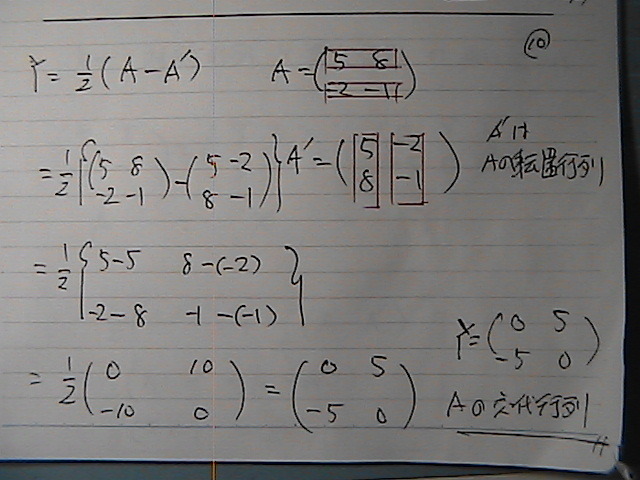 ⑩
Y = 1/2 (A − A′)  A = (5 8 / −2 −1)
= 1/2 {(5 8 / −2 −1) − (5 −2 / 8 −1)}  A′ = (5 −2 / 8 −1)  A′は
Aの転置行列
= 1/2 {5−5 8−(−2) / −2−8 −1−(−1)}
= 1/2 (0 10 / −10 0) = (0 5 / −5 0)  Y = (0 5 / −5 0)
Aの交代行列
〃